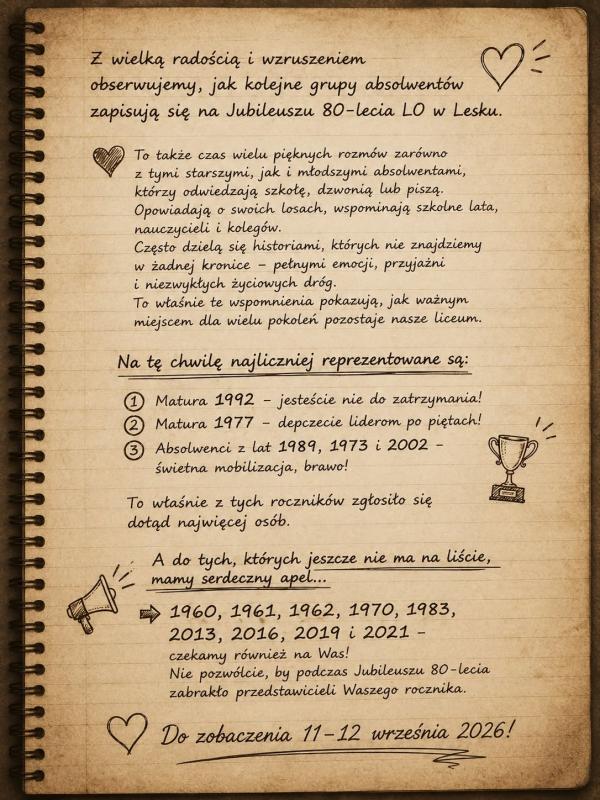 Z wielką radością i wzruszeniem
obserwujemy, jak kolejne grupy absolwentów
zapisują się na Jubileuszu 80-lecia LO w Lesku.
To także czas wielu pięknych rozmów zarówno
z tymi starszymi, jak i młodszymi absolwentami,
którzy odwiedzają szkołę, dzwonią lub piszą.
Opowiadają o swoich losach, wspominają szkolne lata,
nauczycieli i kolegów.
Często dzielą się historiami, których nie znajdziemy
w żadnej kronice – pełnymi emocji, przyjaźni
i niezwykłych życiowych dróg.
To właśnie te wspomnienia pokazują, jak ważnym
miejscem dla wielu pokoleń pozostaje nasze liceum.
Na tę chwilę najliczniej reprezentowane są:
1 Matura 1992 – jesteście nie do zatrzymania!
2 Matura 1977 – depczecie liderom po piętach!
3 Absolwenci z lat 1989, 1973 i 2002 –
świetna mobilizacja, brawo!
To właśnie z tych roczników zgłosiło się
dotąd najwięcej osób.
A do tych, których jeszcze nie ma na liście,
mamy serdeczny apel...
1960, 1961, 1962, 1970, 1983,
2013, 2016, 2019 i 2021 –
czekamy również na Was!
Nie pozwólcie, by podczas Jubileuszu 80-lecia
zabrakło przedstawicieli Waszego rocznika.
Do zobaczenia 11–12 września 2026!